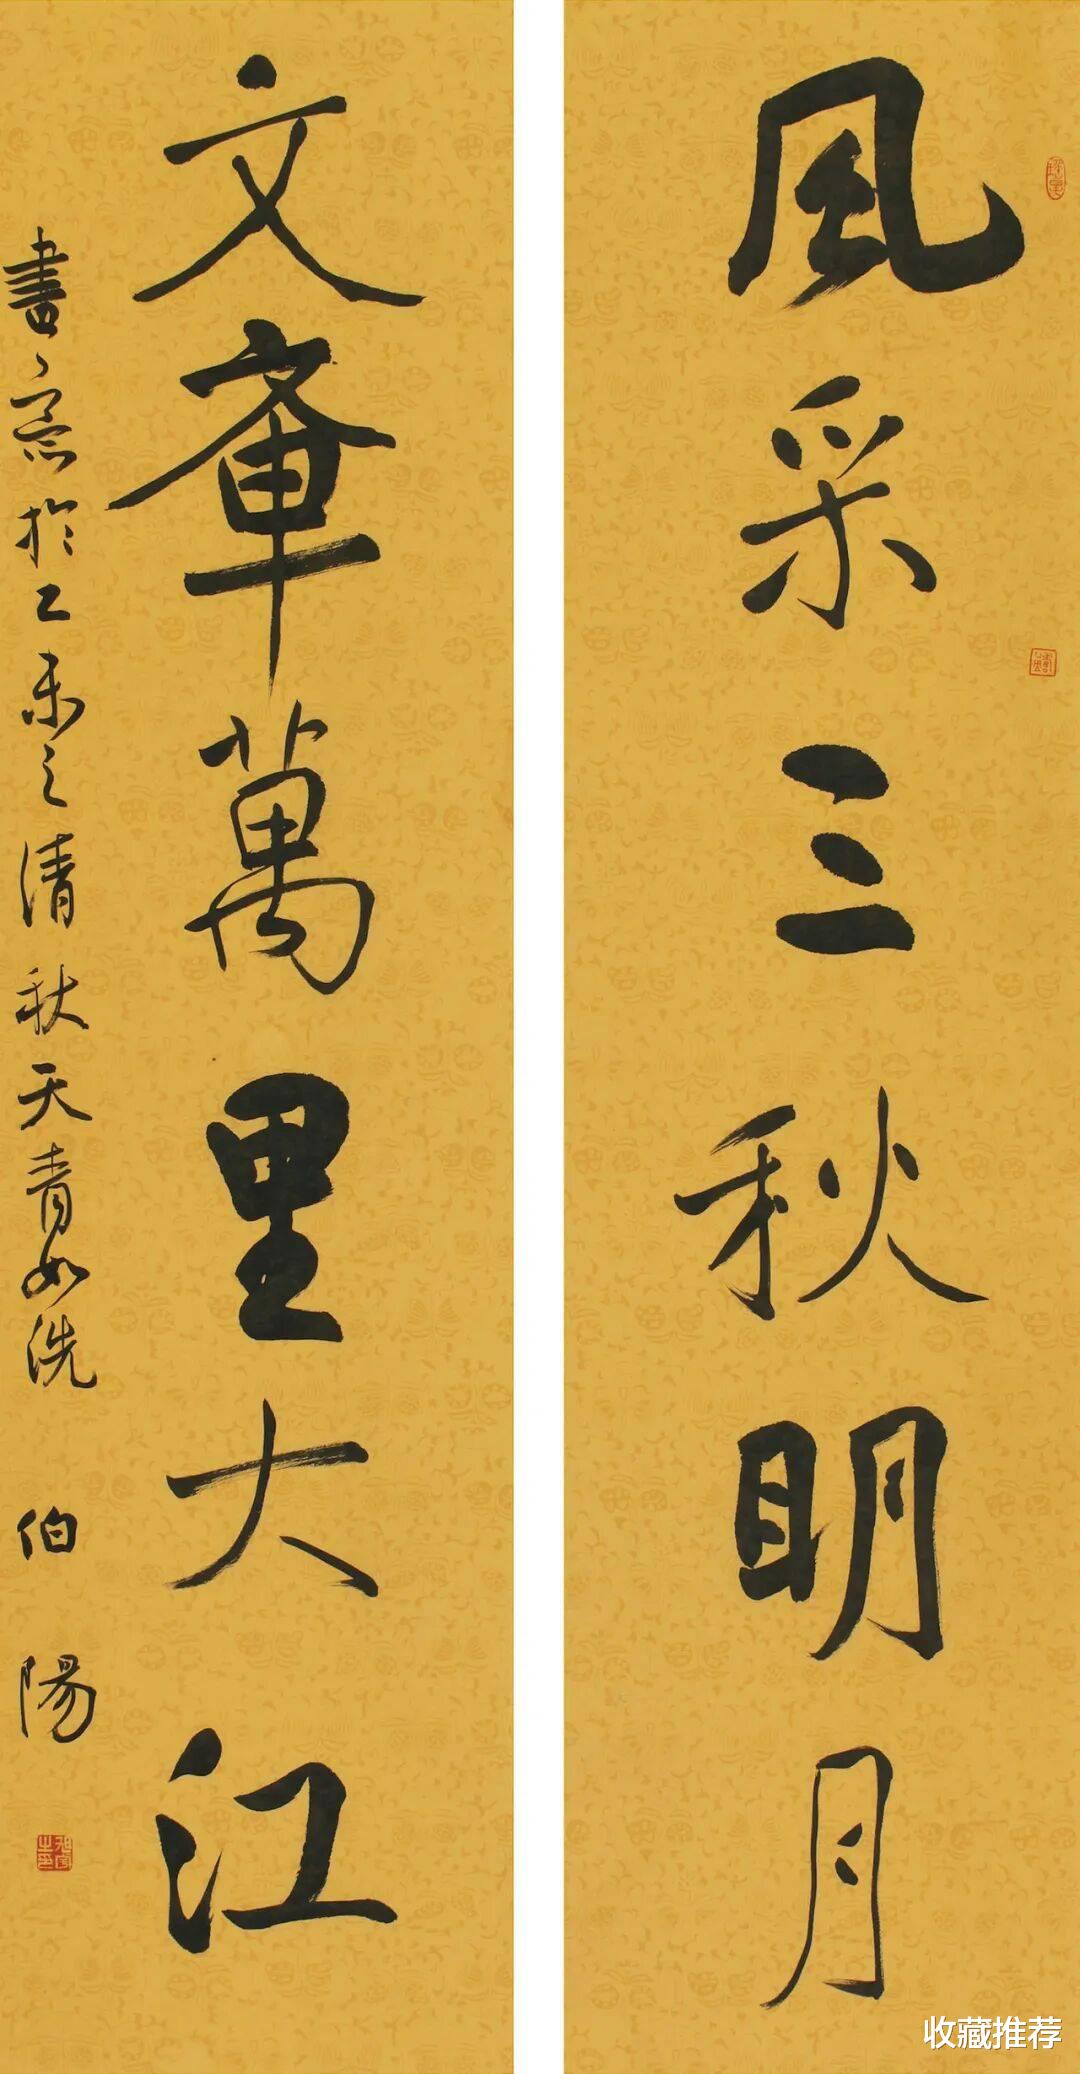 風采三秋明月
文章萬里大江
書於乙未之清秋天青如洗 伯陽
收藏推荐